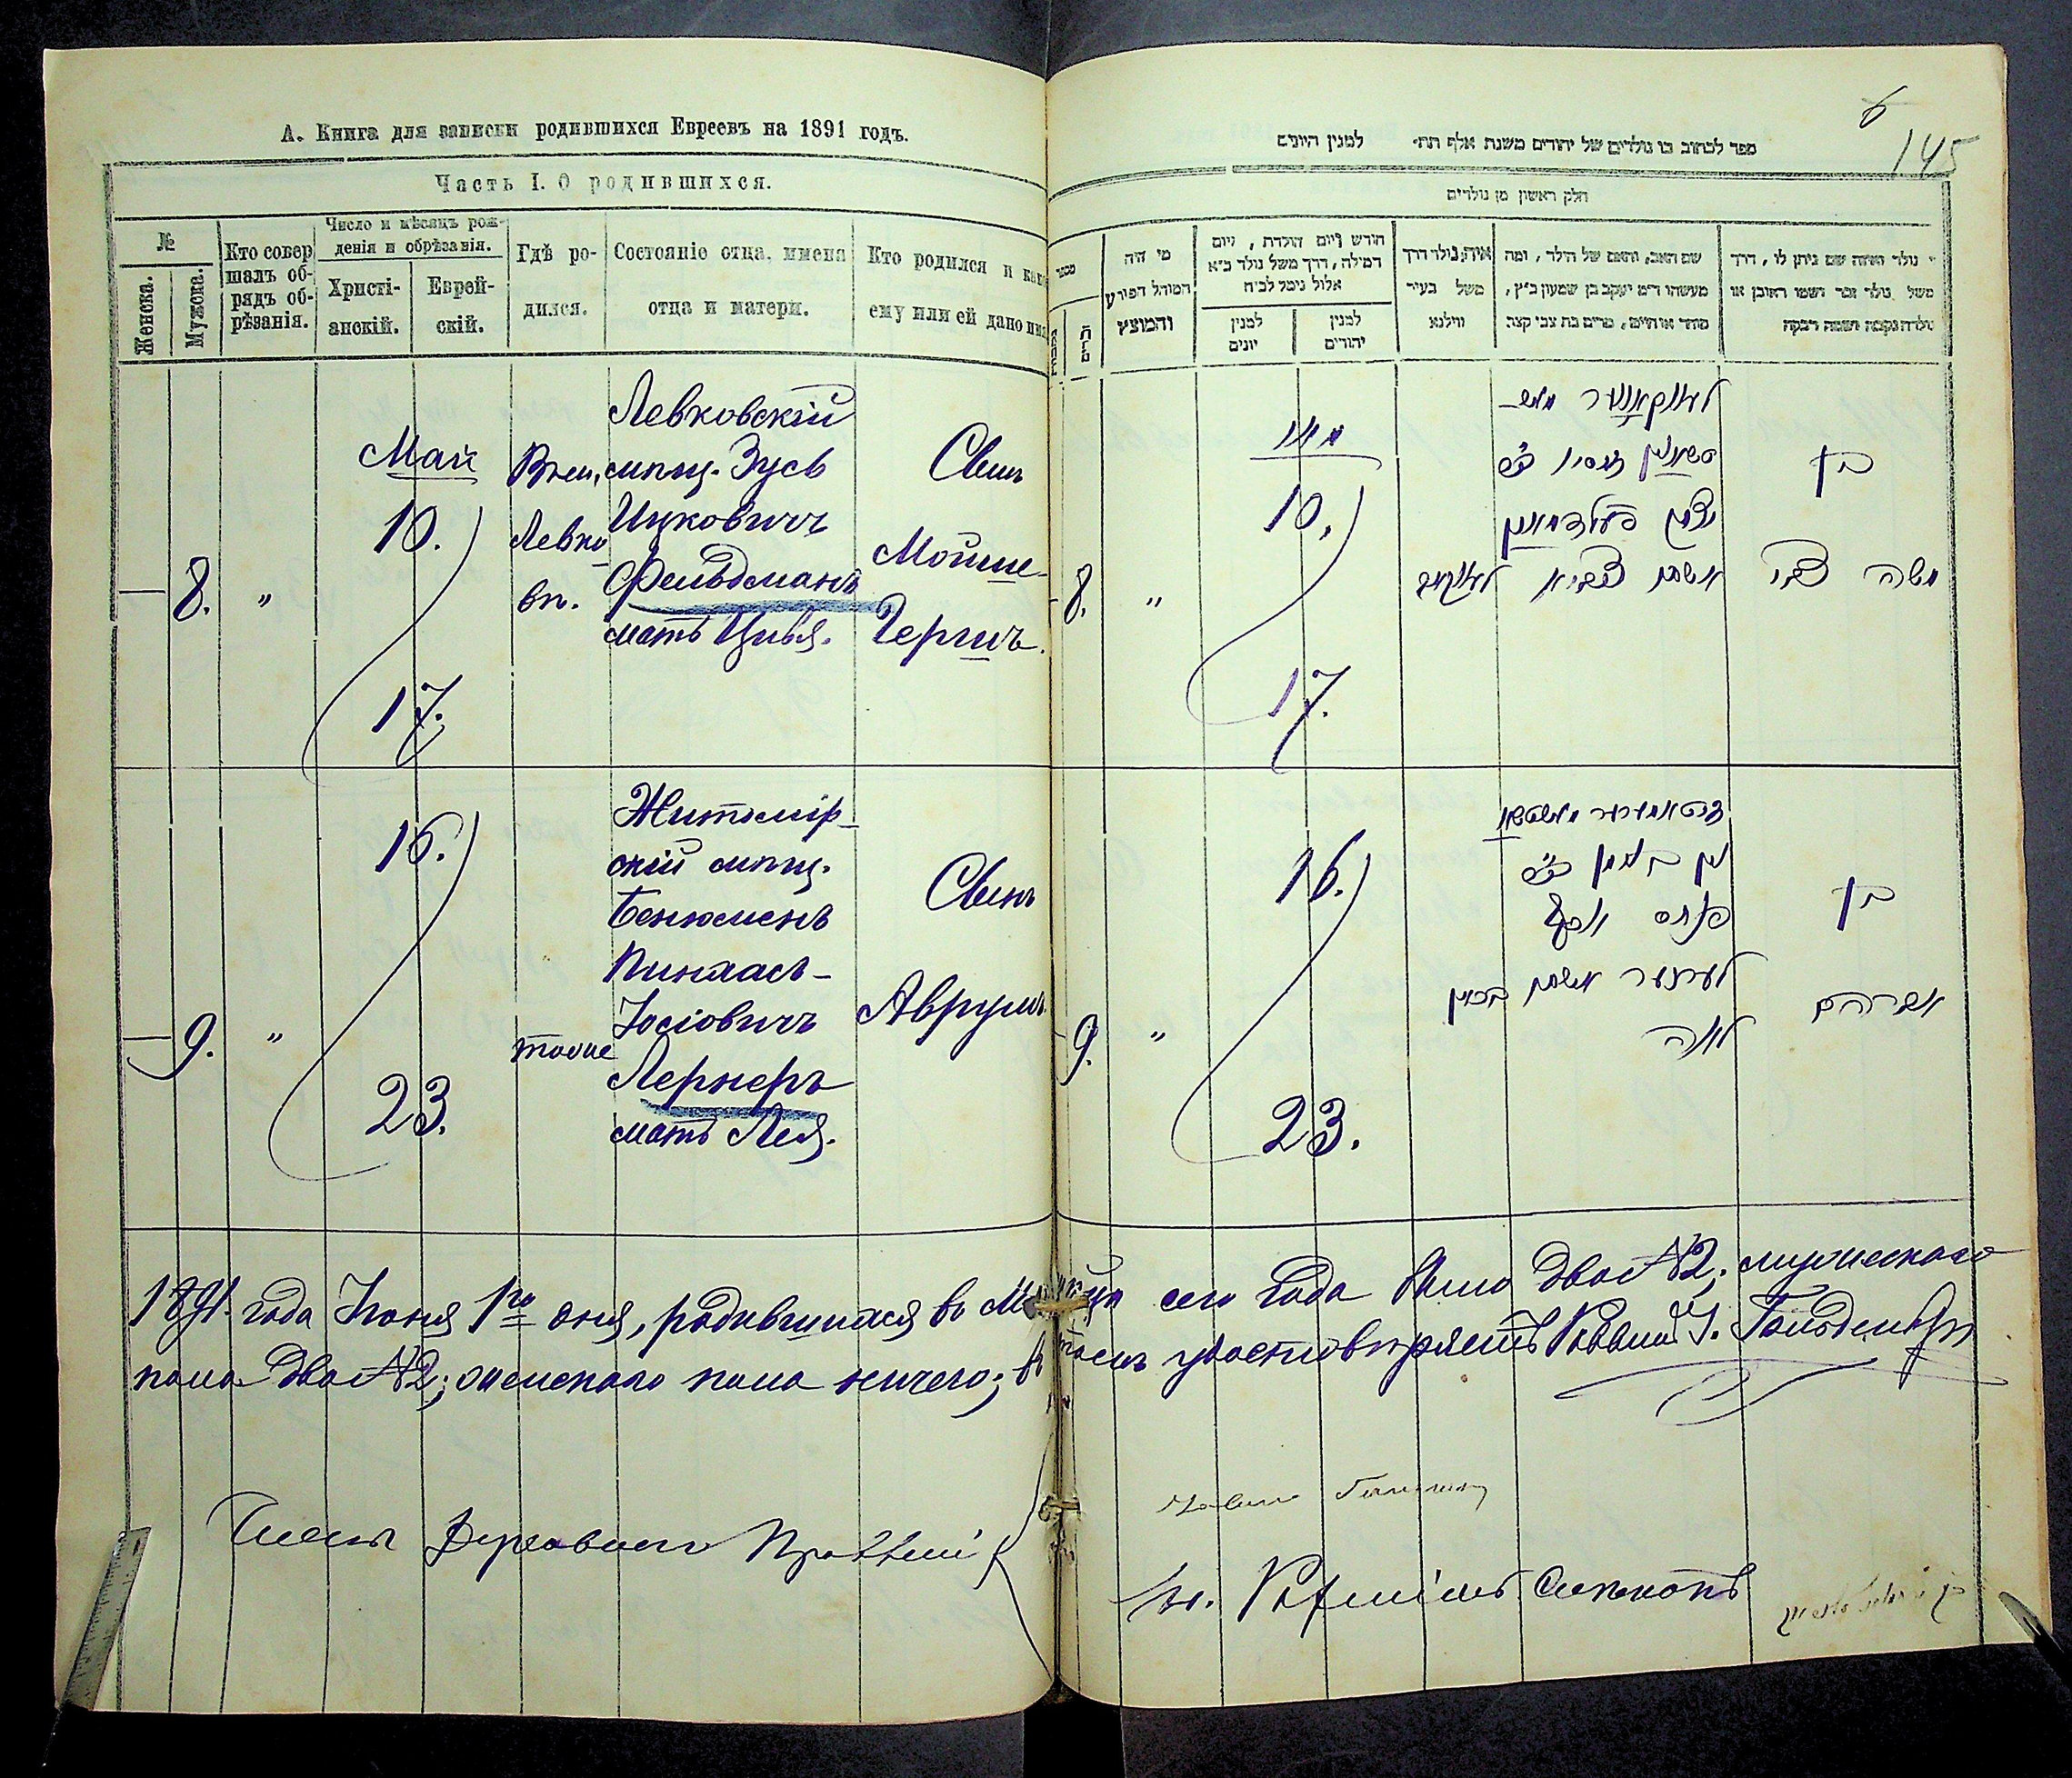 А. Книга для записки родившихся Евреевъ на 1891 годъ.
Часть I. О родившихся.
№
Женска.
Мужска.
Кто совер
шалъ об-
рядъ об-
рѣзанія.
Число и мѣсяцъ рож-
денія и обрѣзанія.
Христі-
анскій.
Еврей-
скій.
Гдѣ ро-
дился.
Состояніе отца, имена
отца и матери.
Кто родился и како
ему или ей дано имя
8.
"
Май
10.
17.
Левко
вѣ.
Левковскій
мѣщ. Зусь
Ицковичъ
Фельдманъ
мать Цивья.
Сынъ
Мойше-
Гершъ.
9.
"
16.
23.
тоже
Житомір-
скій мѣщ.
Бенюменъ
Пинхасъ-
Іосіовичъ
Лернеръ
мать Лея.
Сынъ
Аврумъ
6
145
ספר לכתוב בו נולדים של יהודים משנת אלף תת׳ למנין היונים
חלק ראשון מן נולדים
מי היה
המוהל הפורע
והמוצץ
חודש ויום הולדת, ויום
המילה, דרך משל נולד כ״א
אלול נימל לכ״ח
למנין
יונים
למנין
יהודים
איה נולד דרך
משל בעיר
ווילנא
שם האב, והאם של הילד, ומה
מעשהו ר״מ יעקב בן שמעון כ״ץ,
סוחר או חייט, מרים בת צבי קצב
נולד ואיזה שם ניתן לו, דרך
משל נולד זכר ושמו ראובן או
נולדה נקבה ושמה רבקה
8.
"
מאי
10.
17.
יצחק פעלדמאן
אשתו צביא
בן
משה צבי
9.
"
16.
23.
לערנער אשתו
לאה
בן
אברהם
1891 года Іюня 1го дня, родившихся въ Маѣ мѣсяцѣ сего года было два №2; мужескаго
пола два №2; женскаго пола ничего; въ томъ удостовѣряетъ Раввинъ
Членъ Духовнаго Правленія